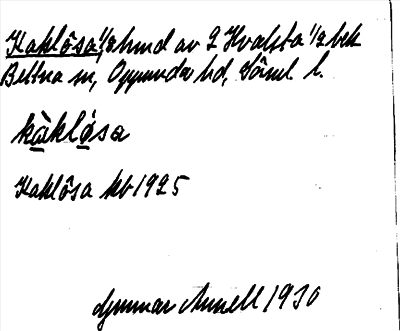 Kaklösa 1/2 hmd av 2 Hvalsta 1/2 bek
Bettna sn, Oppunda hd, Söml l.
kàklǿsa
Kaklösa kb 1925
Gunnar Annell 1930